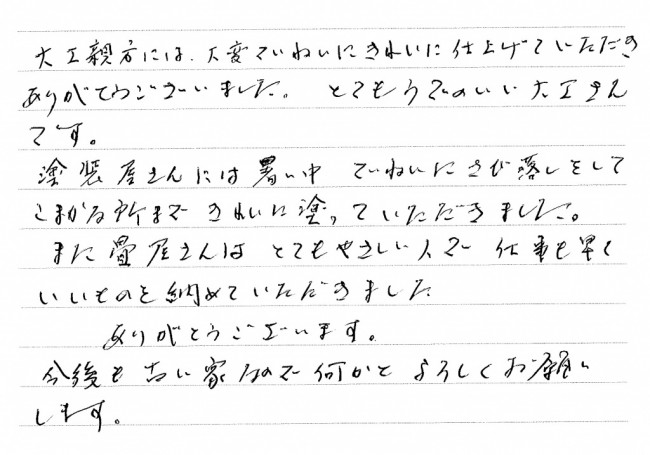 大工親方には、大変ていねいにきれいに仕上げていただき
ありがとうございました。 とてもうでのいい大工さん
です。
塗装屋さんには暑い中 ていねいにさび落しをして
こまかな所まで きれいに塗っていただきました。
また畳屋さんは とてもやさしい人で 仕事も早く
いいものを納めていただきました
ありがとうございます。
今後も古い家なので何かと よろしくお願い
します。